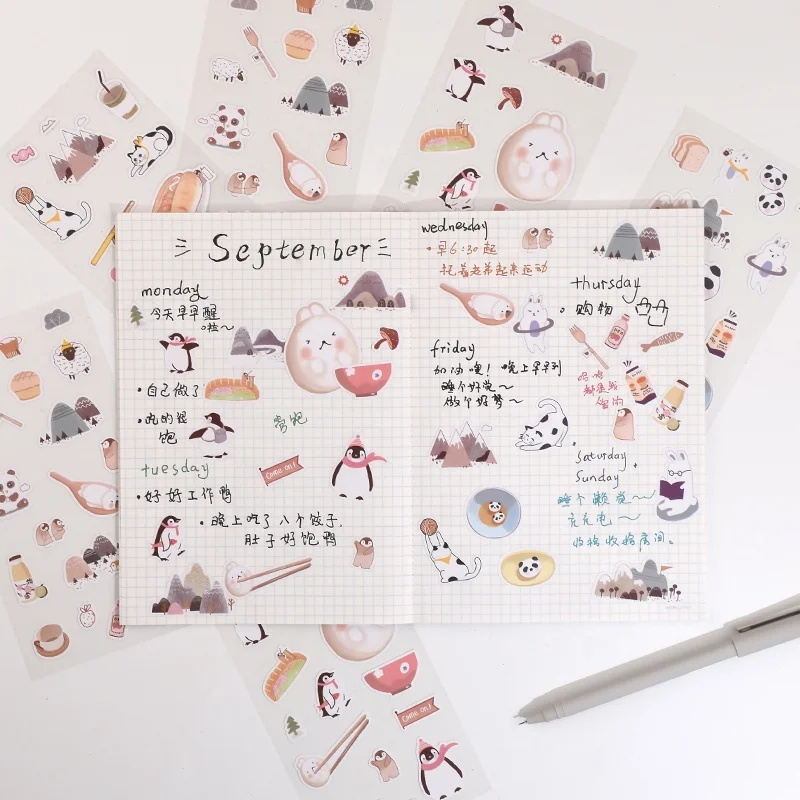 September
monday
今天早早醒
啦~
• 自己做了
• 吃的很
饱
tuesday
come on!
• 好好工作鸭
• 晚上吃了八个饺子.
肚子好饱鸭
wednesday
• 早6:30起
托着老弟起来运动
thursday
• 购物
friday
加油噢! 晚上早早到
睡个好觉~
做个好梦~
saturday
Sunday
睡个懒觉~
充充电~
收拾收拾房间。
come on!